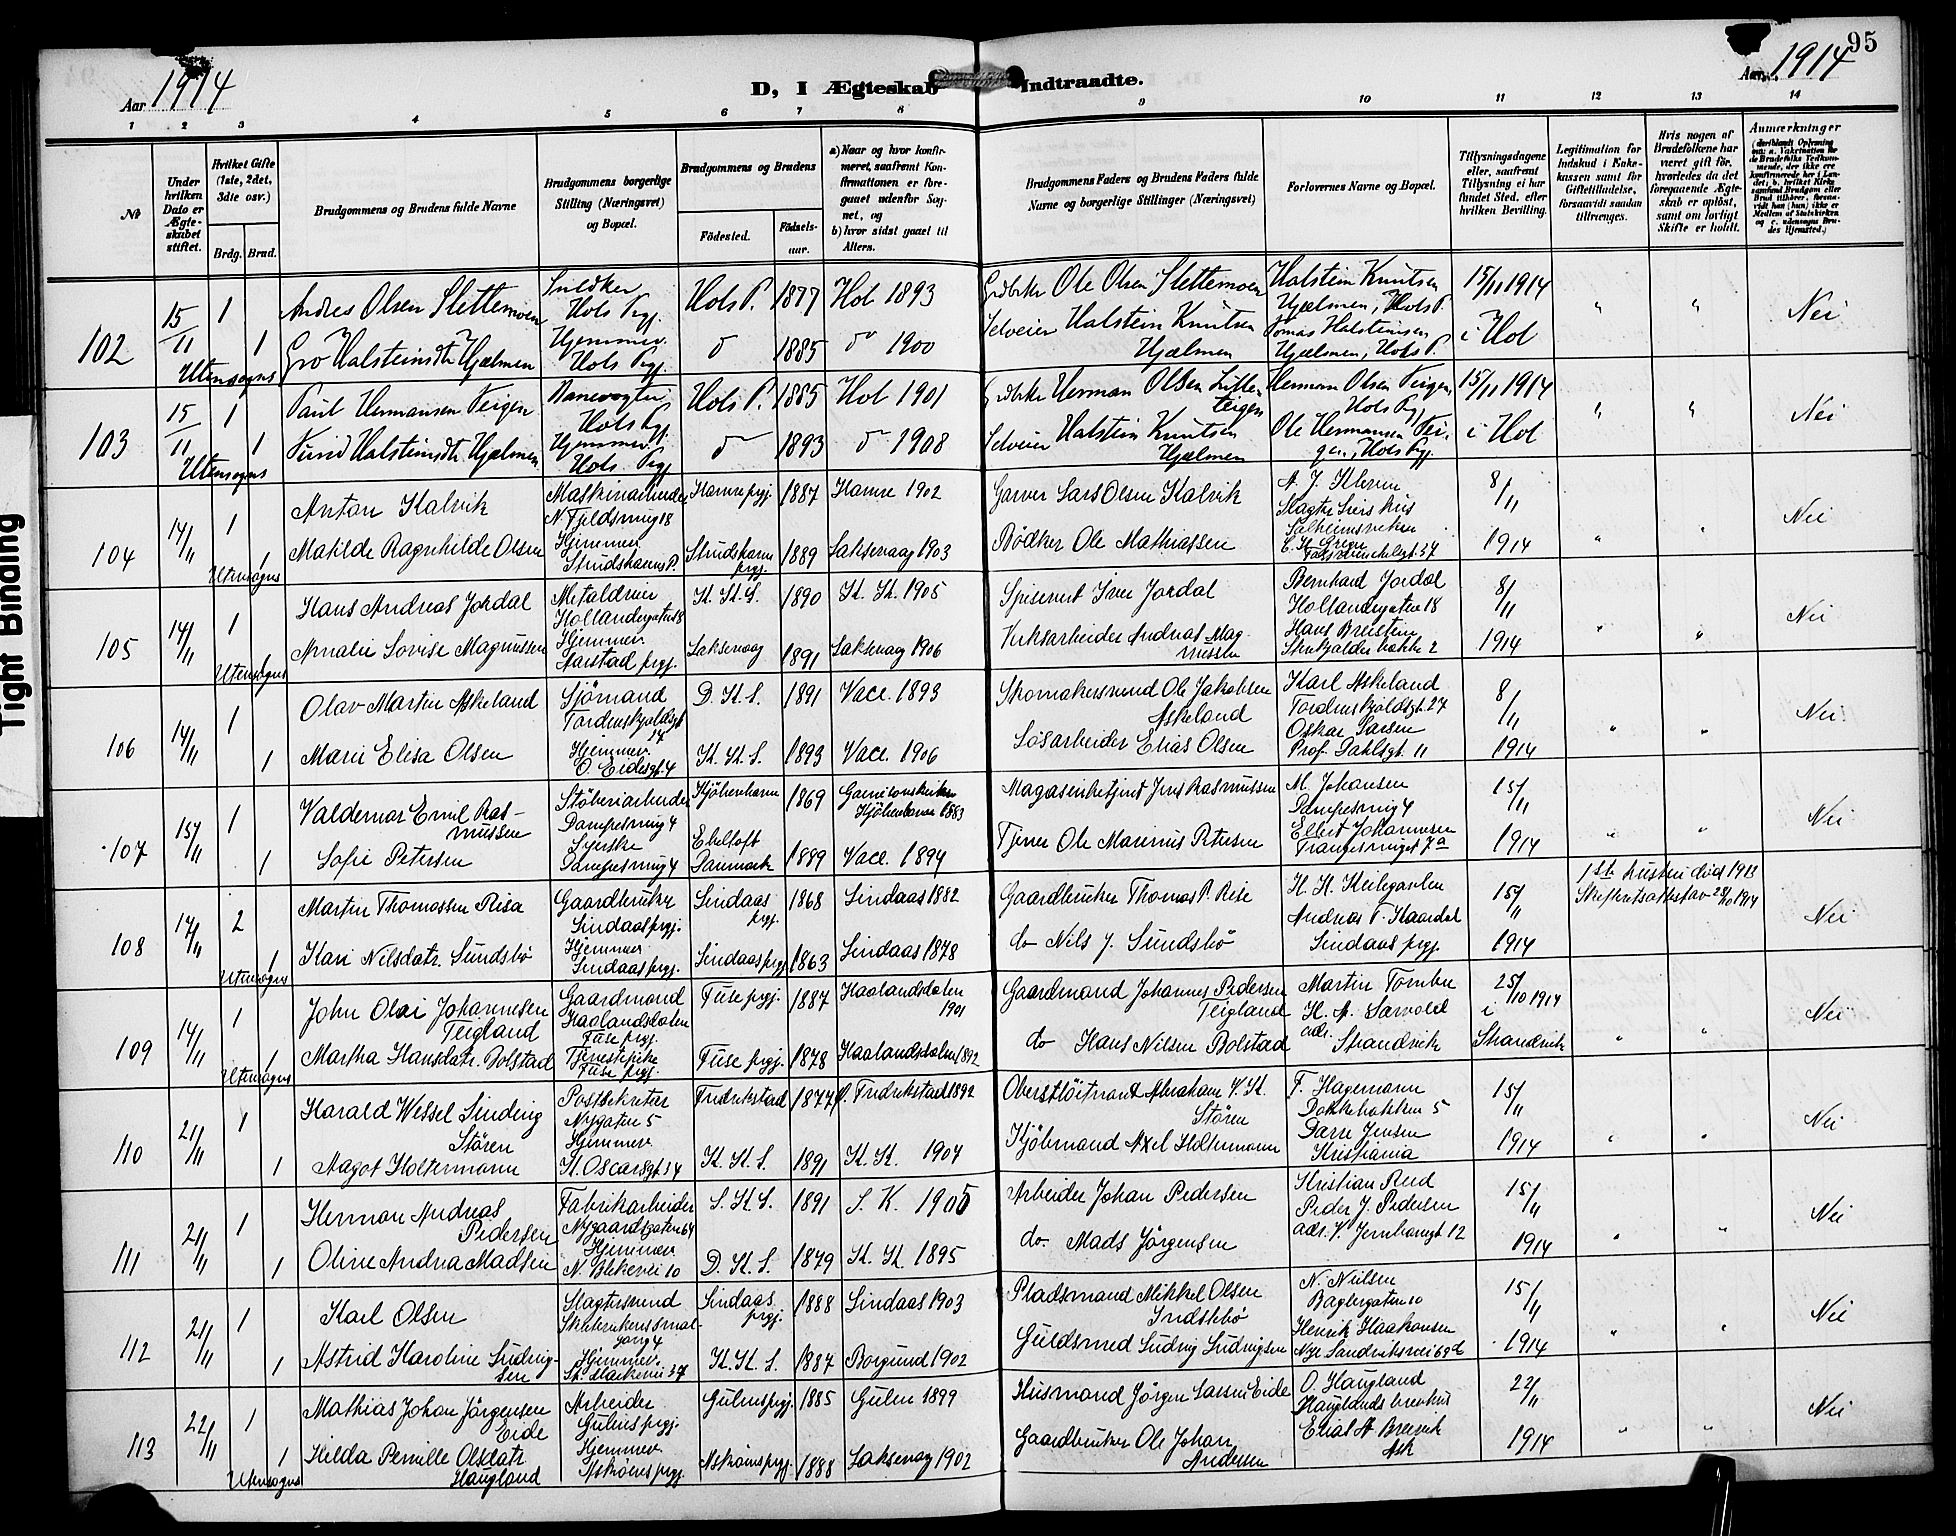 95
Aar 1914
D, I Ægteskab Indtraadte.
Aar 1914
1 2 3 4 5 6 7 8 9 10 11 12 13 14
№
Under hvilken Dato er Ægteskabet stiftet.
Hvilket Gifte (1ste, 2det, 3die osv.)
Brdg. Brud.
Brudgommens og Brudens fulde Navne
Brudgommens borgerlige Stilling (Næringsvei) og Bopæl.
Brudgommens og Brudens
Födested.
Födselsaar.
a) Naar og hvor konfirmeret, saafremt Konfirmationen er foregaaet udenfor Sognet, og
b) hvor sidst gaaet til Alters.
Brudgommens Faders og Brudens Faders fulde Navne og borgerlige Stillinger (Næringsvei)
Forlovernes Navne og Bopæl.
Tillysningsdagene eller, saafremt Tillysning ei har fundet Sted, efter hvilken Bevilling.
Legitimation for Indskud i Enkekassen samt for Giftetilladelse, forsaavidt saadan tiltrænges.
Hvis nogen af Brudefolkene har været gift før, hvorledes da det foregaaende Ægteskab er opløst, samt om lovligt Skifte er holdt.
Anmærkninger
102 15/11 1 Andres Olsen Slettemoen Snedker Hols Prgj. Hols P. 1877 Hol 1893 Grdbrker Ole Olsen Slettemoen Halstein Knutsen Hjælmen, Hols P. 15/11 1914 " " Nei
1 Gro Halsteinsdtr Hjælmen Hjemmev. Hols Prgj. do 1885 do 1900 Selveier Halstein Knutsen Hjælmen Tomas Halsteinsen Hjælmen, Hols P. i Hol
Utensogns
103 15/11 1 Paul Hermansen Teigen Banevogter Hols Prgj. Hols P. 1885 Hol 1901 Grdbrker Herman Olsen Lille-teigen Herman Olsen Teigen Hols Prgj 15/11 1914 " " Nei
1 Turid Halsteinsdtr Hjælmen Hjemmev. Hols Prgj do 1893 do 1908 Selveier Halstein Knutsen Hjælmen Ole Hermansen Teigen, Hols Prgj. i Hol
Utensogns
104 14/11 1 Anton Kalvik Maskinarbeider N. Fjeldsmug 18 Hamre prgj. 1887 Hamre 1902 Garver Lars Olsen Kalvik A. J. Kleven Slagter 8/11 " " Nei
1 Matilde Ragnhilde Olsen Hjemmev. Strudshavns P. Strudshavn prgj. 1889 Laksevaag 1903 Bødker Ole Mathiassen Solheimsviken 1914
Utensogns
105 14/11 1 Hans Andreas Jordal Metaldreier Hollendergaten 18 K. K. S. 1890 K. K. 1905 Spisevert Iver Jordal Bernhard Jordal Hollendergaten 18 8/11 " " Nei
1 Amalie Lovise Magnussen Hjemmev. Aarstad prgj. Laksevaag 1891 Laksevaag 1906 Verksarbeider Andreas Magnussen Hans Breistein 1914
Utensogns
106 14/11 1 Olav Martin Askeland Sjömand Tordenskjoldsgt 27 D. K. S. 1891 Vacc. 1893 Skomakersvend Ole Jakobsen Askeland Karl Askeland Tordenskjoldsgt. 27 8/11 " " Nei
1 Marie Elisa Olsen Hjemmev. O. Eidesgt. 4 K. K. S. 1893 Vacc. 1906 Løsarbeider Elias Olsen Oskar Larsen Prof. Dahlsgt. 11 1914
107 15/11 1 Valdemar Emil Rasmussen Støberiarbeider Damfesmug 4 Kjöbenhavn 1869 Garnisonskirken Kjöbenhavn 1883 Magasinbetjent Jens Rasmussen M. Johansen Damfesmug 4 15/11 " " Nei
1 Sofie Petersen Syerske Damfesmug 4 Ebeltoft Danmark 1889 Vacc. 1894 Tjener Ole Marinus Petersen Elbert Johannesen 7a 1914
108 14/11 2 Martin Thomassen Risa Gaardbruker Lindaas prgj. Lindaas prgj. 1868 Lindaas 1882 Gaardbruker Thomas P. Rise H. H. Keilegavlen 15/11 1ste hustru död 1913 Skifteretsattest av 28/10 1914 Nei
1 Kari Nilsdatr. Sundsbö Hjemmev. Lindaas prgj. Lindaas prgj 1863 Lindaas 1878 do Nils J. Sundsbö Andreas T. Haardal Lindaas prgj. 1914
Utensogns
109 14/11 1 John Olai Johannesen Teigland Gaardmand Haalandsdalen Fuse prgj. Fuse prgj. 1887 Haalandsdalen 1901 Gaardmand Johannes Pedersen Teigland Martin Tombre 25/10 1914 " " Nei
1 Martha Hansdatr. Bolstad Tjenestepike Fuse prgj. Fuse prgj. 1878 Haalandsdalen 1892 do Hans Nilsen Bolstad H. A. Sævold adr. Strandvik i Strandvik
Utensogns
110 21/11 1 Harald Wessel Sinding Stören Postsekretær Nygaten 5 Fredrikstad 1877 V. Fredrikstad 1892 Oberstlöitnant Abraham V. K. Stören F. Hagemann Dokkebakken 5 15/11 " " Nei
1 Aagot Holtermann Hjemmev. K. Oscarsgt. 34 K. K. S. 1891 K. K. 1907 Kjöbmand Axel Holtermann Jensen Kristiania 1914
111 21/11 1 Herman Andreas Pedersen Fabrikarbeider Nygaardsgaten 64 S. K. S. 1891 S. K. 1905 Arbeider Johan Pedersen Kristian Reed 15/11 " " Nei
1 Oline Andrea Madsen Hjemmev. N. Blekevei 10 D. K. S. 1879 K. K. 1895 do. Mads Jörgensen Peder J. Pedersen adr. V. Jernbanegt 12 1914
112 21/11 1 Karl Olsen Slagtersvend Lindaas prgj. 1888 Lindaas 1903 Pladsmand Mikkel Olsen Indstebö N. Nielsen Baglergaten 10 15/11 " " Nei
1 Astrid Karoline Ludvigsen Hjemmev. St. Markevei 37 K. K. S. 1887 Borgund 1902 Guldsmed Ludvig Ludvigsen Henrik Haakonsen Nye Sandviksvei 69d 1914
113 22/11 1 Mathias Johan Jörgensen Eide Arbeider Gulens prgj. Gulens prgj. 1885 Gulen 1899 Husmand Jörgen Larsen Eide O. Haugland 22/11 " " Nei
1 Hilda Pernille Olsdatr Haugland Hjemmev. Askøens prgj. Askøens prgj. 1888 Laksevaag 1902 Gaardbruker Ole Johan Andersen Elias A Breivik Ask 1914
Utensogns
Tight Binding